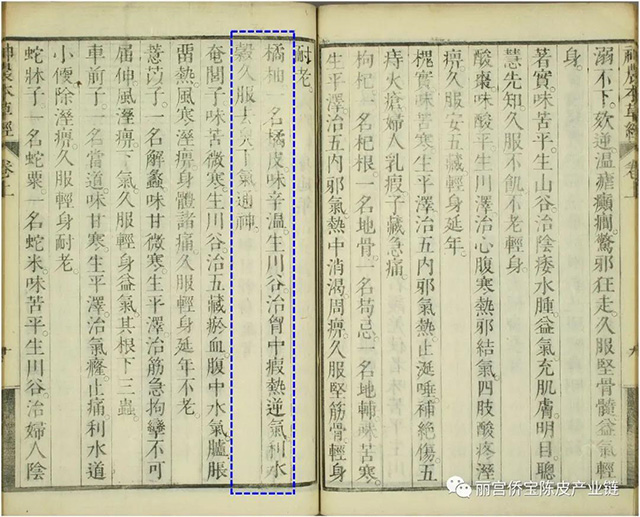 神農本草經 卷上 九
溺不下。欬逆溫瘧癲癇。驚邪狂走。久服堅骨髓。益氣輕
身。
蓍實。味苦平。生山谷。治陰痿水腫。益氣充肌膚。明目。聰
慧先知。久服不飢不老輕身。
酸棗。味酸平。生川澤。治心腹寒熱。邪結氣。四肢酸疼。溼
痹。久服安五藏。輕身延年。
槐實。味苦寒。生平澤。治五內邪氣熱。止涎唾。補絕傷。五
痔火瘡。婦人乳瘕。子藏急痛
枸杞。一名杞根。一名地骨。一名苟忌。一名地輔。味苦寒。
生平澤。治五內邪氣。熱中消渴。周痹。久服堅筋骨。輕身
耐老。
橘柚。一名橘皮。味辛溫。生川谷。治胷中瘕熱逆氣。利水
穀。久服去臭下氣通神。
奄閭子。味苦微寒。生川谷。治五藏瘀血。腹中水氣。臚脹
畱熱。風寒溼痹。身體諸痛。久服輕身延年不老
薏苡子。一名解蠡。味甘微寒。生平澤。治筋急拘攣。不可
屈伸。風溼痹。下氣。久服輕身益氣。其根下三蟲。
車前子。一名當道。味甘寒。生平澤。治氣癃。止痛。利水道
小便。除溼痹。久服輕身耐老。
蛇牀子。一名蛇粟。一名蛇米。味苦平。生川谷。治婦人陰
神農本草經 卷上 十
丽宫侨宝陈皮产业链